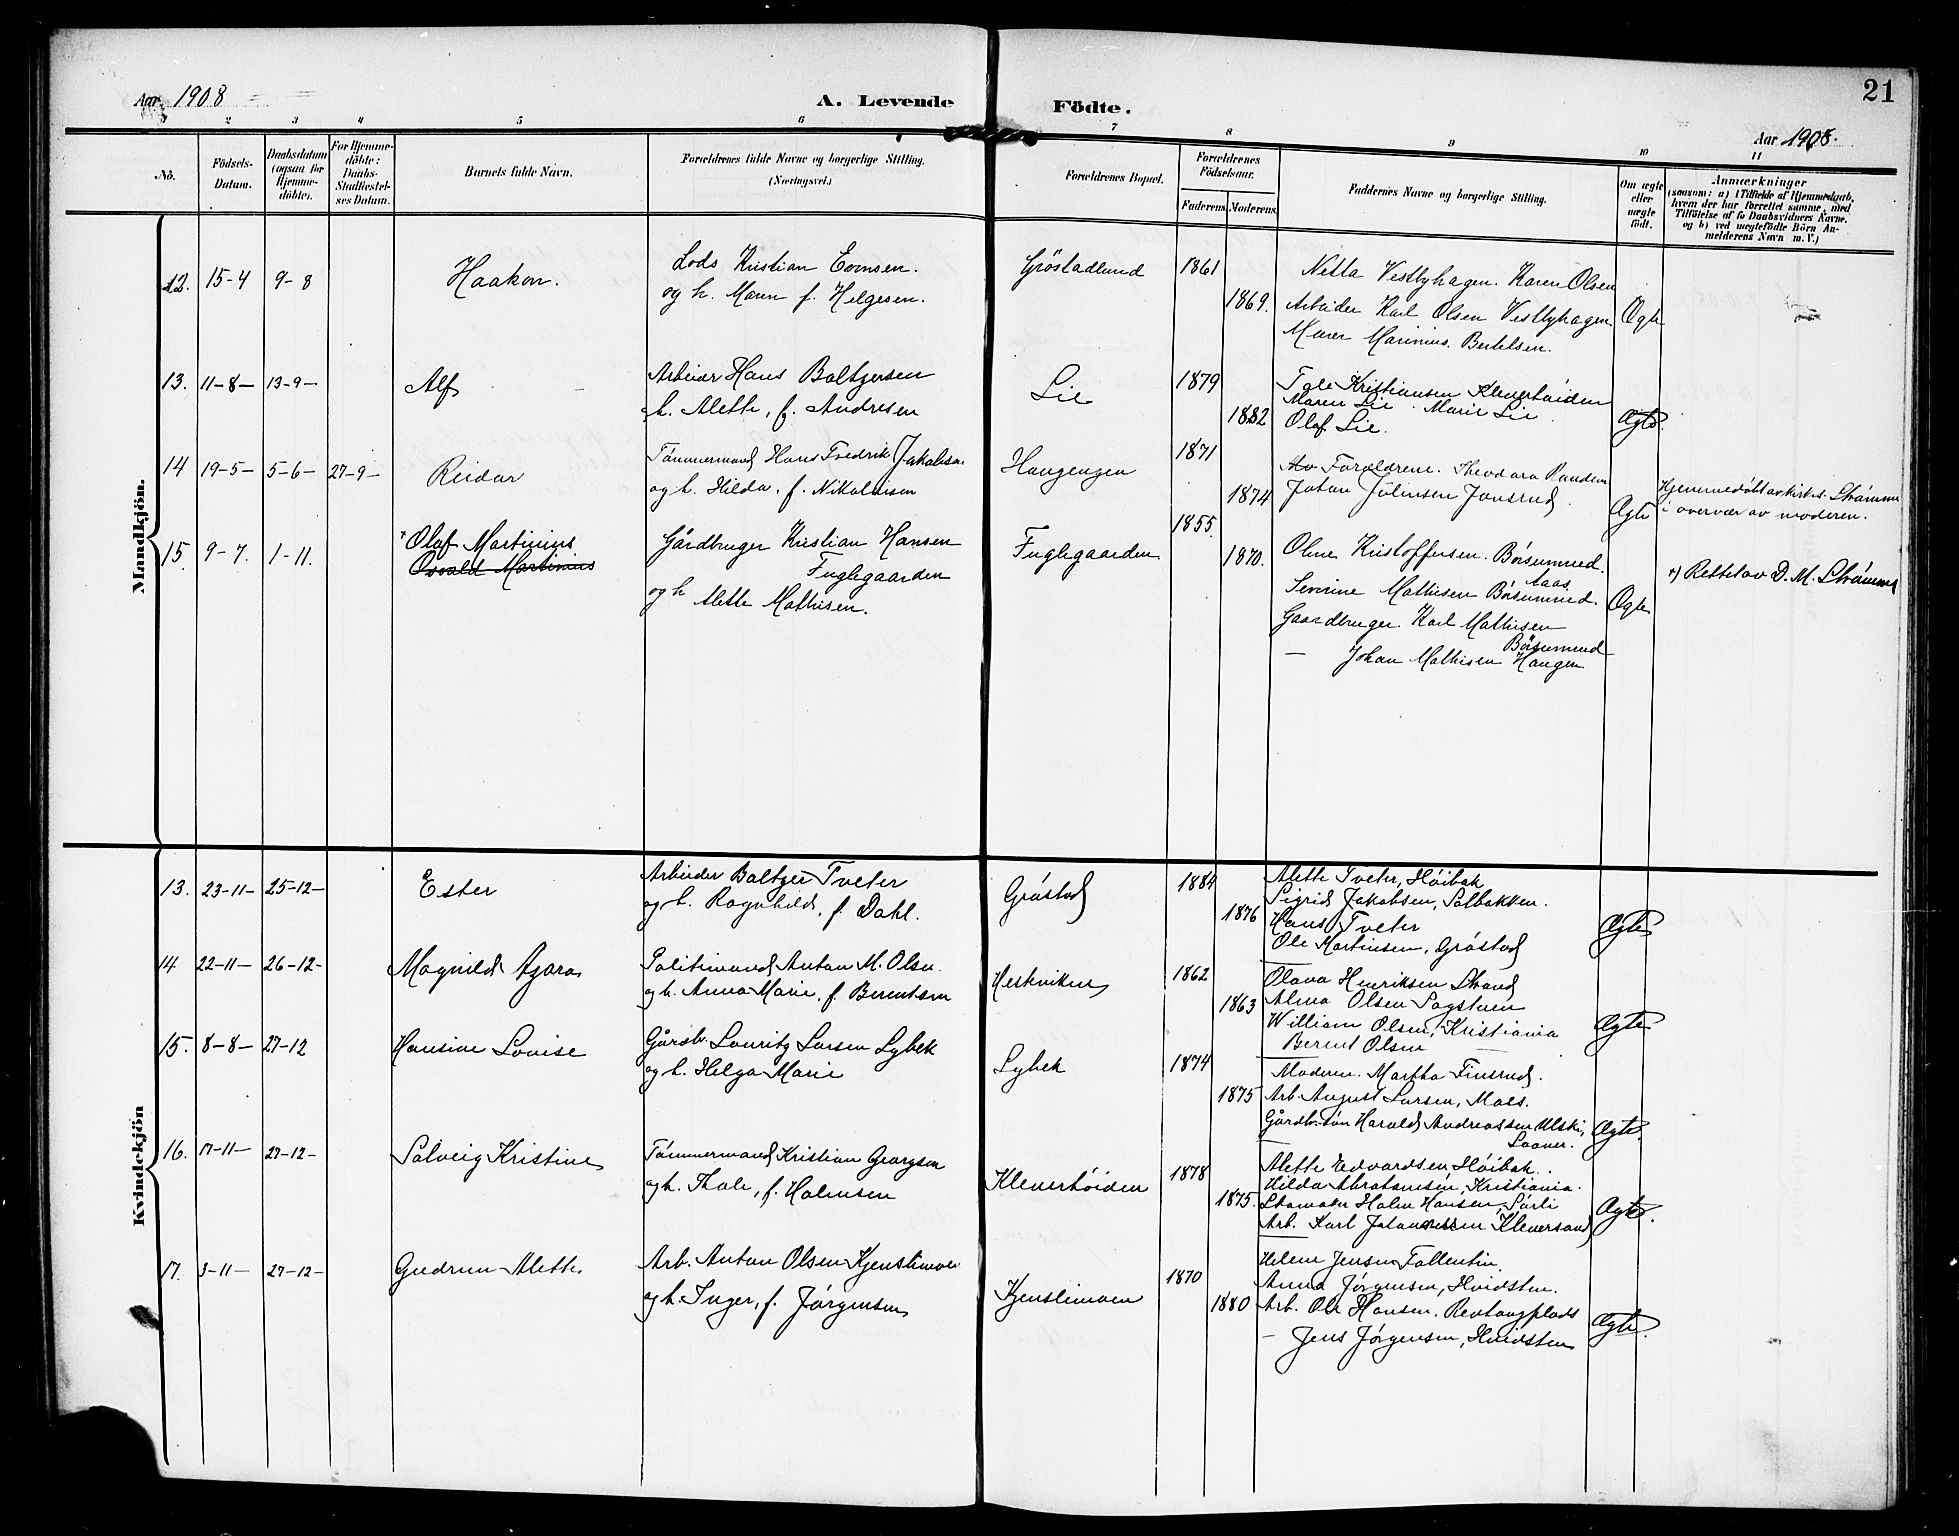 Aar 1908
A. Levende Födte.
21
Aar 1908.
1 2 3 4 5 6 7 8 9 10 11
No.
Födsels-Datum.
Daabsdatum (ogsaa for Hjemme-döbte).
For Hjemme-döbte: Daabs-Stadfæstel-ses Datum.
Barnets fulde Navn.
Forældrenes fulde Navne og borgerlige Stilling.
(Næringsvei.)
Forældrenes Bopæl.
Forældrenes Födselsaar.
Faderens. Moderens.
Faddernes Navne og borgerlige Stilling.
Om ægte eller uægte födt.
Anmærkninger
(saasom: a) i Tilfælde af Hjemmedaab,
hvem der har forrettet samme, med
Tilföielse af to Daabsvidners Navne.
og b) ved uægtefödte Börn An-
melderens Navn m. V.)
Mandkjön.
12. 15-4 9-8 Haakon.
Lods Kristian Evensen.
og h. Maren f. Helgesen.
Gröstadlund 1861 1869.
Netta Vestbyhagen. Karen Olsen
Arbeider Karl Olsen Vestbyhagen
Murer Marinius Bertelsen.
Ægte
13. 11-8- 13-9- Alf
Arbeider Hans Baltzersen
h. Alette, f. Andresen
Lie 1879 1882
Tale Kristiansen Kleverhöiden
Maren Lie. Marie Lie
Olaf Lie.
Ægte.
14 19-5- 5-6- 27-9- Reidar
Tömmermand Hans Fredrik Jakobsen
og h. Hilda, f. Nikolaisen
Haugengen 1871 1874
Av Forældrene. Theodora Randem
Johan Julinsen Jonsrud.
Ægte
Hjemmedöbt av kirkes. Strömme
i overvær av moderen.
15. 9-7. 1-11. + Olaf Martinius
Osvald Martinius
Gårdbruger Kristian Hansen
Fuglegaarden
og h Alette Mathisen.
Fuglegaarden 1855. 1870.
Oline Kristoffersen. Börsumrud.
Aas
Severine Mathisen Börsumrud.
Gaardbruger. Karl Mathisen
Börsumrud
— Johan Mathisen Haugen
Ægte
+) Rettet av D. M. Strömme
Kvindekjön
13. 23-11- 25-12- Ester
Arbeider Baltzer Tveter
og h. Ragnhild, f. Dahl.
Gröstad 1884 1876
Alette Tveter, Höibak
Sigrid Jakobsen, Solbakken.
Hans Tveter
Ole Martinsen, Gröstad
Ægte
14 22-11- 26-12- Magnild Agara
Politimand Anton M. Olsen.
og h. Anna Marie, f. Berentsen
Herkviken 1862 1863
Olava Henriksen Strand
Alma Olsen Sagstuen
William Olsen, Kristiania
Berent Olsen —
Ægte
15. 8-8- 27-12 Hansine Lovise
Gårdbr. Lauritz Larsen Lybek
og h. Helga Marie
Lybek 1874 1875
Moderen. Martha Finsrud.
Arb. August Larsen, Moes.
Gårdbr. sön Harald Andreassen Ulski,
Laaver.
Ægte.
16. 17-11- 27-12- Solveig Kristine
Tömmermand Kristian Georgsen
og h. Thale, f. Halvorsen
Kleverhöiden 1878 1875.
Alette Edvardsen, Höibak.
Hilda Abrahamsen, Kristiania.
Skomaker Holm Hansen, Sörli
Arb. Karl Johannessen Kleversand
Ægte.
17. 3-11- 27-12- Gudrun Alette.
Arb. Anton Olsen Kjenslimoen
og h. Inger, f. Jörgensen
Kjenslimoen 1870 1880
Helene Jensen Tollentin.
Anna Jörgensen, Hvidsten.
Arb. Ole Hansen. Revhaugplads
— Jens Jörgensen, Hvidsten
Ægte.